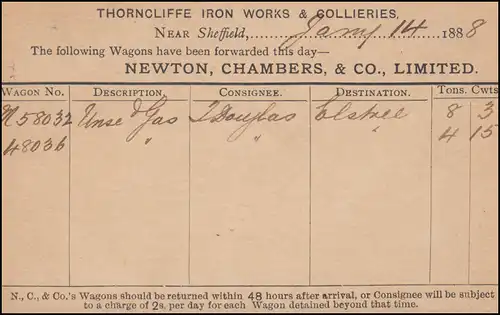 THORNCLIFFE IRON WORKS & COLLIERIES,
NEAR Sheffield,........Jany 14....1888
The following Wagons have been forwarded this day—
NEWTON, CHAMBERS, & CO., LIMITED.
WAGON NO. DESCRIPTION. CONSIGNEE. DESTINATION. Tons. Cwts
N 58032 Unsd Gas J Douglas Elstree 8 3
48036 " " " 4 15
N., C., & Co.'s Wagons should be returned within 48 hours after arrival, or Consignee will be subject
to a charge of 2s. per day for each Wagon detained beyond that time.